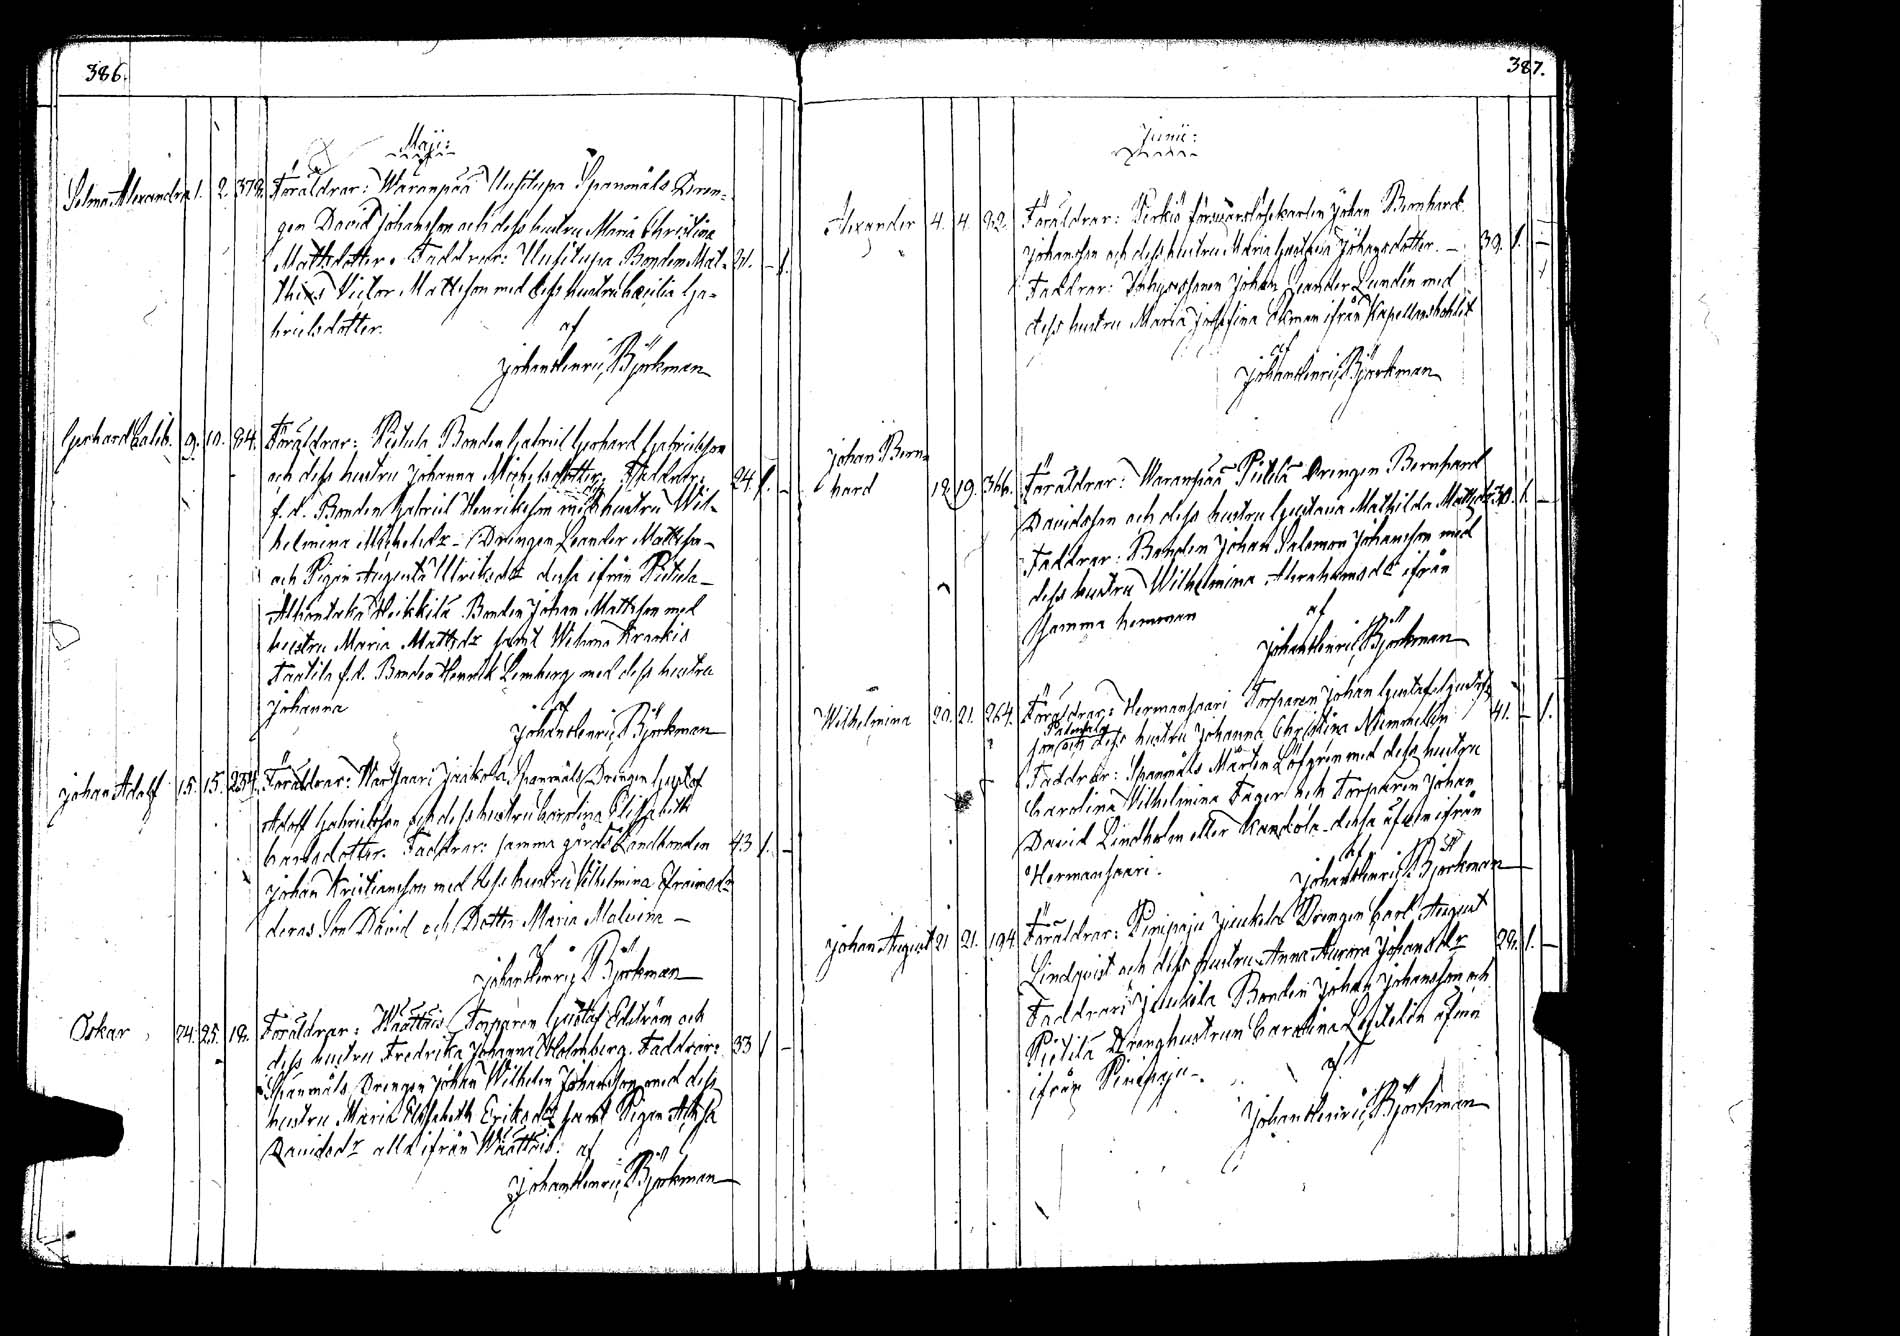 386.
Maji:
Selma Alexandra 1. 2. 378. Föräldrar: Waranpää Uusitupa Spanmåls Dren-
gen David Johansson och dess hustru Maria Christina
Mattsdotter. Faddrar: Uusitupa Bonden Mat- 31. - 1.
thias Victor Mattsson med dess hustru Cæcilia Ga-
brielsdotter.
af
Johan Henric Björkman
Gerhard Caleb. 9. 10. 84. Föräldrar: Pietula Bonden Gabriel Gerhard Gabrielsson
och dess hustru Johanna Michelsdotter. Faddrar: 24. 1. -
f.d. Bonden Gabriel Henriksson med hustru Wil-
helmina Michelsdr - Drengen Leander Mattsson
och Pigan Augusta Ulriksdr dessa ifrån Pietula -
Heikkilä Bonden Johan Mattsson med
hustru Maria Mattsdr samt
f.d. Bonden Henrik Lemberg med dess hustru
Johanna
af
Johan Henric Björkman
Johan Adolf 15. 15. 234. Föräldrar: Wartsaari Jaakola Spanmåls Drengen Gustaf
Adolf Gabrielsson och dess hustru Carolina Elisabeth
Carlsdotter. Faddrar: samma gårds Landbonden 43 1. -
Johan Kristiansson med dess hustru Wilhelmina Efraimsdr
deras Son David och Dotter Maria Malvina -
af
Johan Henric Björkman
Oskar 24. 25. 18. Föräldrar: Torparen Gustaf Edström och
dess hustru Fredrika Johanna Holmberg. Faddrar: 33 1 -
Spanmåls Drengen Johan Wilhelm Johansson med dess
hustru Maria Elisabeth Eriksdr samt Pigan
Davidsdr alla ifrån af
Johan Henric Björkman
387.
Junii:
Alexander 4. 4. 82. Föräldrar: Pirkiö försvarslösekarlen Johan Bernhard
Johansson och dess hustru Maria Gustava Johansdotter. - 39. 1. -
Faddrar: Inhysessonen Johan Leander Lundén med
dess hustru Maria Josefina Ekman ifrån Kapellansbohlet
af
Johan Henric Björkman
Johan Bern-
hard 18. 19. 366. Föräldrar: Waranpää Pietilä Drengen Bernhard
Davidsson och dess hustru Gustava Mathilda Mattsdr 30. 1. -
Faddrar: Bonden Johan Salomon Johansson med
dess hustru Wilhelmina Abrahamsdr ifrån
samma hemman
af
Johan Henric Björkman
Wilhelmina 20. 21. 264. Föräldrar: Hermansaari Torparen Johan Gustaf Gustafs-
son och dess hustru Johanna Christina Nummelin 41. - 1.
Faddrar: Spanmåls Mårten Löfgren med dess hustru
Carolina Wilhelmina Fager och Torparen Johan
David Lindholm eller Kandola - dessa äfven ifrån
Hermansaari.
af
Johan Henric Björkman
Johan August 21 21. 194 Föräldrar: Pinipaju Jaukola Drengen Carl August
Lindqvist och dess hustru Anna Aurora Johansdr 28. 1. -
Faddrar: Bonden Johan Johansson och
Pietilä Drenghustrun Carolina äfven
ifrån Pinipaju -.
af
Johan Henric Björkman